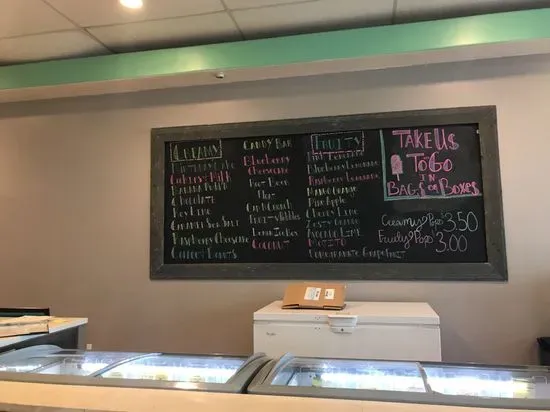 Creamy
Birthday Cake
Cookies & Milk
Banana Puddin
Chocolate
Key Lime
Caramel Sea Salt
Raspberry Cheesecake
Coffee & Donuts
Candy Bar
Blueberry
Cheesecake
Root Beer
Float
Fruity Pebbles
Lemon Icebox
Coconut
Fruity
Pink Lemonade
Blueberry Lemonade
Raspberry Lemonade
Mango Orange
Pineapple
Cherry Lime
Avocado Lime
Mojito
Pomegranate Grapefruit
Take Us
To Go
in
Bags or Boxes
Creamy Pops $3.50
Fruity Pops $3.00